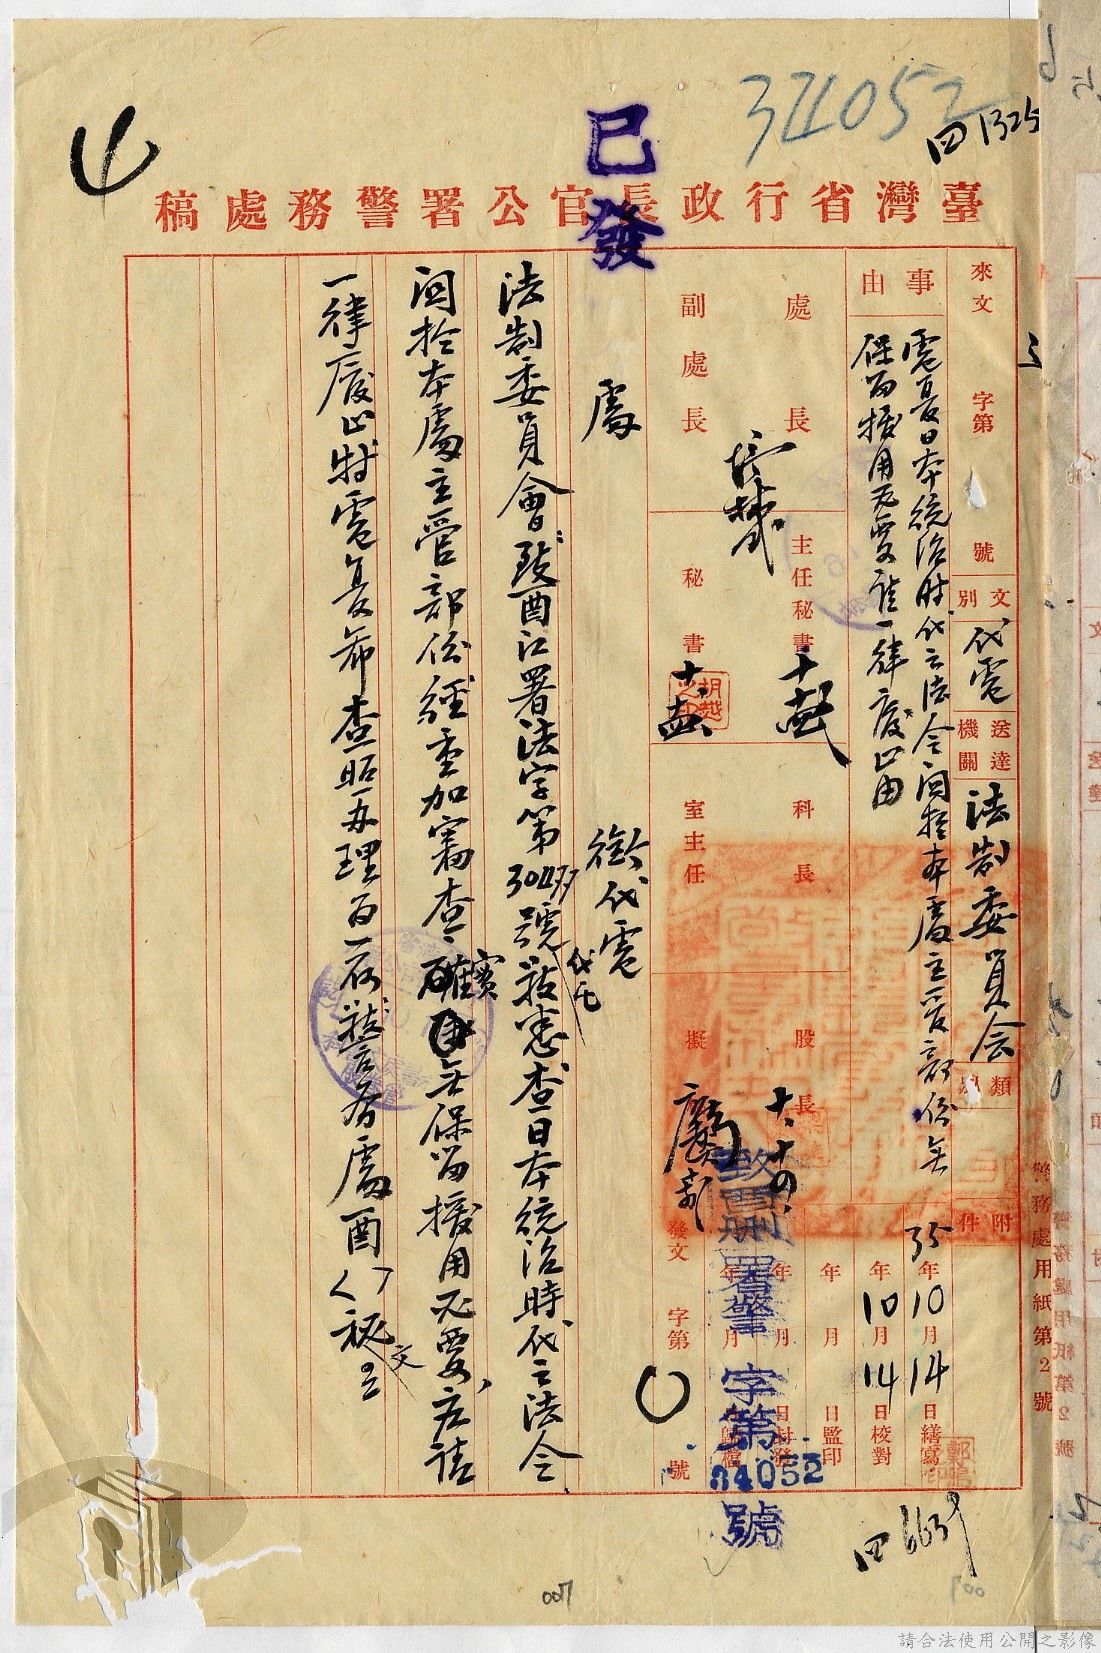 32052
四1325
已發
臺灣省行政長官公署警務處稿
來文 字第 號
文別 代電
送達機關 法制委員会
類別
附件
事由
電爲日本統治時代之法令關於本處主管部份無
保留援用必要請一律廢止由
處長
副處長
主任秘書
秘書
胡越之印
科長
室主任
股長
擬
十、十四、
35年10月14日繕寫
年10月14日校對
年 月 日監印
年 月 日封發
年 月 日歸檔
發文 字第 號
致刪署警字第84052號
處銜代電
法制委員會致酉江署法字第號代電敬悉查日本統治時代之法令
關於本處主管部份經重加審查確實無保留援用必要，應請
一律廢止特電復希查照辦理為荷警務處酉 秘文
四6639
警務處用紙第2號
007
請合法使用公開之影像